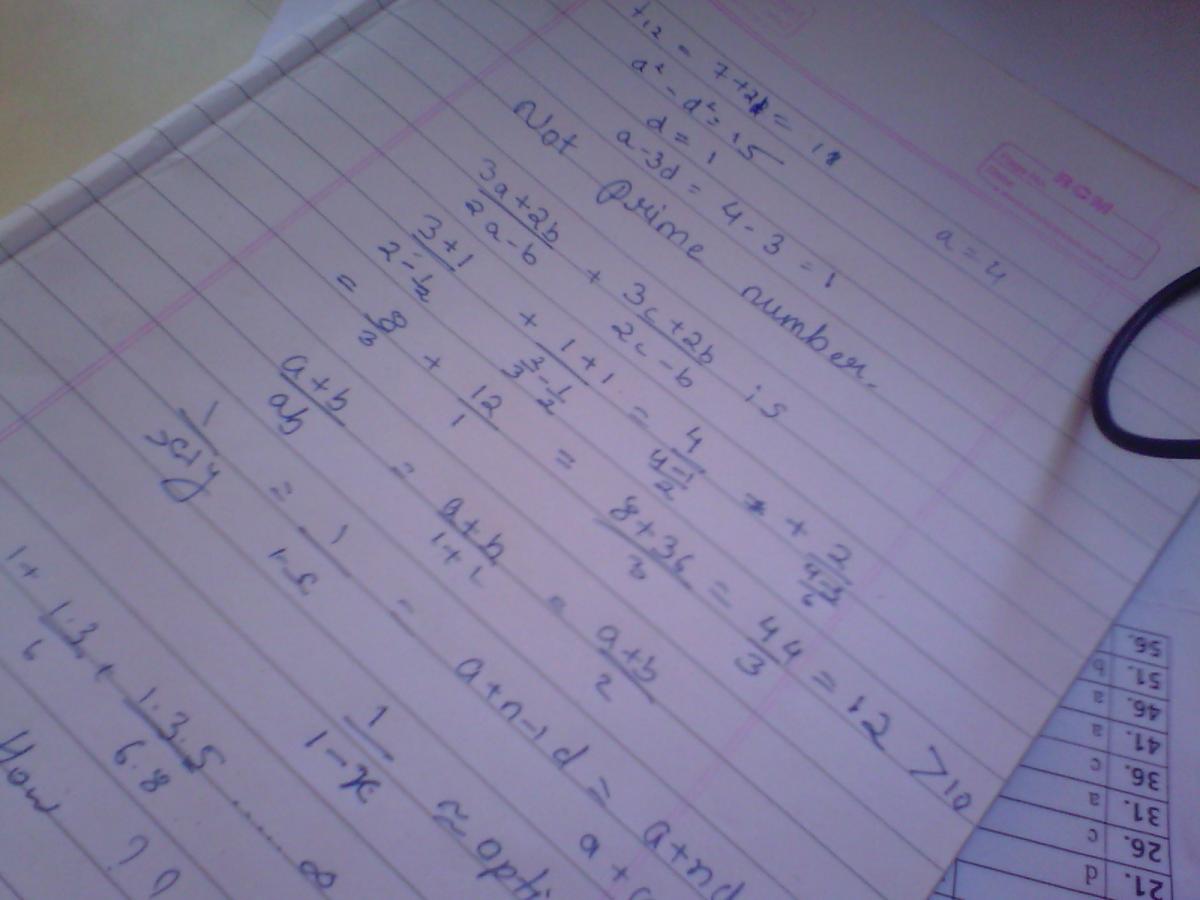 +12 = 7+2d = 18
a² - d² = 15
d = 1 a = 4
a-3d = 4-3 = 1
Not Prime number.
3a+2b/2a-b + 3c+2b/2c-b is
3+1/2-1/2 + 1+1/2/3-1/2 = 4/4-1/2 + 2/4-3/6
= 8/3 + 12/1 = 8+36/3 = 44/3 = 12 > 10
a+b/ab = a+b/1+c = a+b/2
1/x+y = 1/1-c = a+n-1 d = a+nd
1/1-x
1 + 1.3/6 + 1.3.5/6.8 ...... ∞
How ??
RCM
56.
51. b
46. a
41. a
36. c
31. a
26. c
21. d